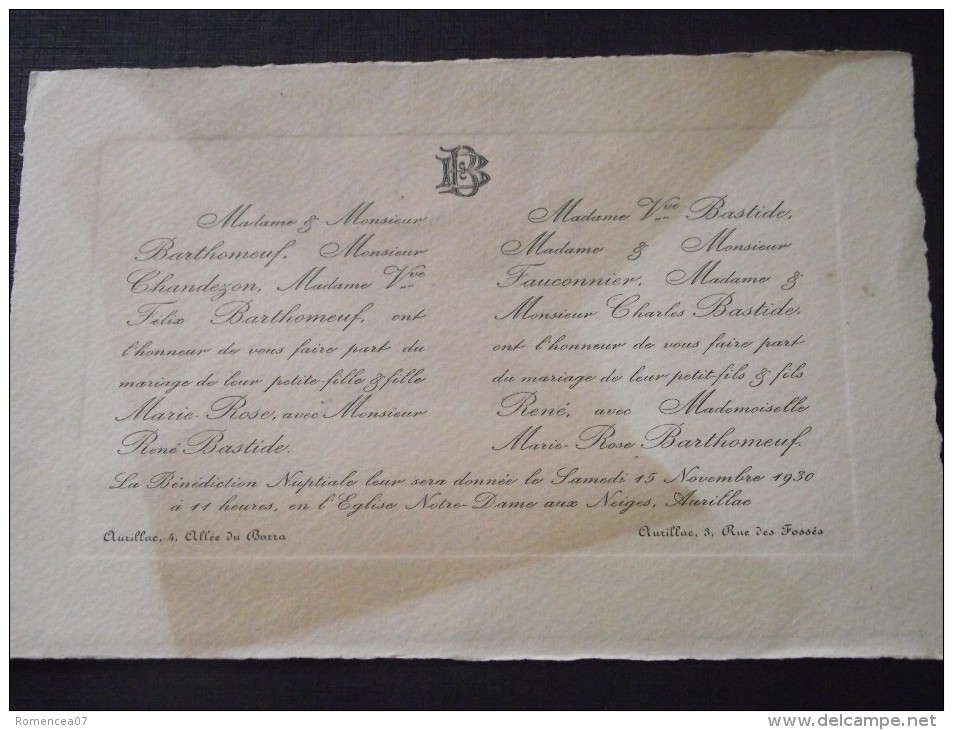 B&B
Madame & Monsieur
Barthomeuf, Monsieur
Chandezon, Madame Vve
Félix Barthomeuf, ont
l'honneur de vous faire part du
mariage de leur petite-fille & fille
Marie-Rose, avec Monsieur
René Bastide.
Madame Vve Bastide,
Madame & Monsieur
Fauconnier, Madame &
Monsieur Charles Bastide,
ont l'honneur de vous faire part
du mariage de leur petit-fils & fils
René, avec Mademoiselle
Marie-Rose Barthomeuf.
La Bénédiction Nuptiale leur sera donnée le Samedi 15 Novembre 1930
à 11 heures, en l'Eglise Notre-Dame aux Neiges, Aurillac
Aurillac, 4, Allée du Barra
Aurillac, 3, Rue des Fossés
Romencea07
delcampe.net